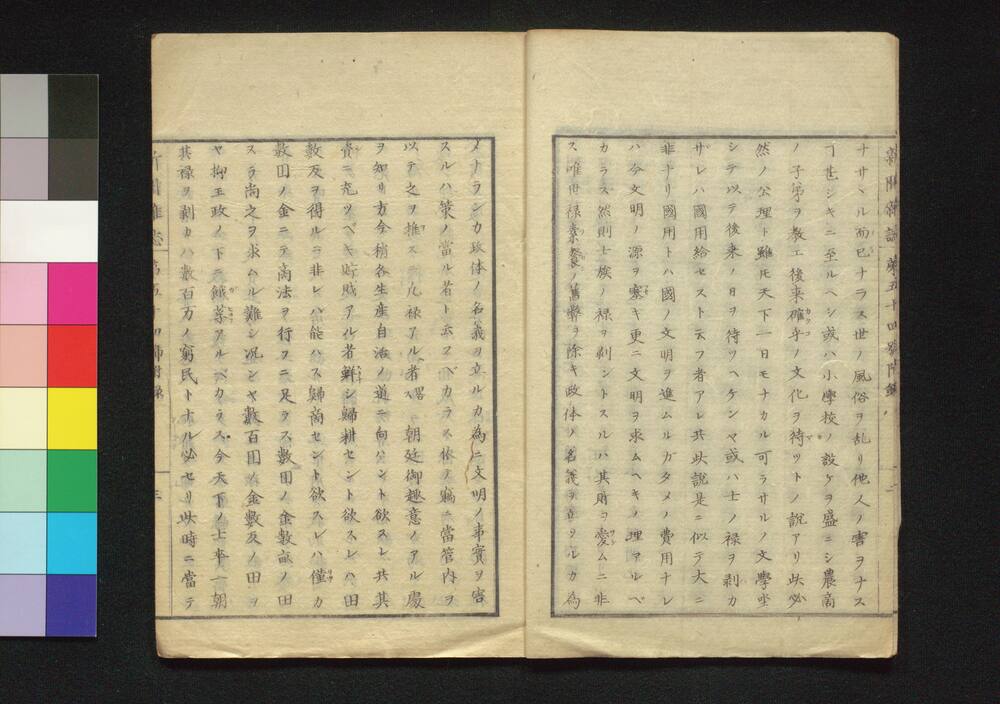 新聞雜誌 第五十四號附録
ナサヽル而已ナラス世ノ風俗ヲ乱リ他人ノ害ヲナス
ヿ甚シキニ至ルヘシ或ハ小學校ノ設ケヲ盛ニシ農商
ノ子弟ヲ教エ後来確乎ノ文化ヲ待ツトノ説アリ此必
然ノ公理ト雖モ天下一日モナカル可ラサルノ文學坐
シテ以テ後来ノ日ヲ待ツヘケンヤ或ハ士ノ禄ヲ剥カ
サレハ國用給セスト云フ者アレ共此説是ニ似テ大ニ
非ナリ國用トハ國ノ文明ヲ進ムルガタメノ費用ナレ
ハ今文明ノ源ヲ塞キ更ニ文明ヲ求ムヘキノ理アルベ
カラス然則士族ノ禄ヲ剥ントスルハ其財ヲ愛ムニ非
ス唯世禄素餐ノ舊弊ヲ除キ政体ノ名義ヲ立ツルカ為
メトランカ政体ノ名義ヲ立ルカ為ニ文明ノ事實ヲ害
スルハ策ノ當ル者ト云フベカラス依テ竊ニ當管内ヲ
以テ之ヲ推スニ凡禄アル者畧 朝廷御趣意ノアル處
ヲ知リ方今稍各生産自活ノ道ニ向ハント欲スレ共其
資ニ充ツベキ貯財アル者鮮シ歸耕セント欲スレハ田
數反ヲ得ルニ非レハ能ハス歸商セント欲スレハ僅カ
數囙ノ金ニテ商法ヲ行フニ足ラス數囙ノ金數畝ノ田
スラ尚之ヲ求ムル難シ况ンヤ數百囙ノ金數反ノ田ヲ
ヤ抑王政ノ下ニ餓莩アルベカラス今天下ノ士卒一朝
其禄ヲ剥カハ數百万ノ窮民トナル必セリ此時ニ當テ
新聞雜誌 第五十四號附録 三